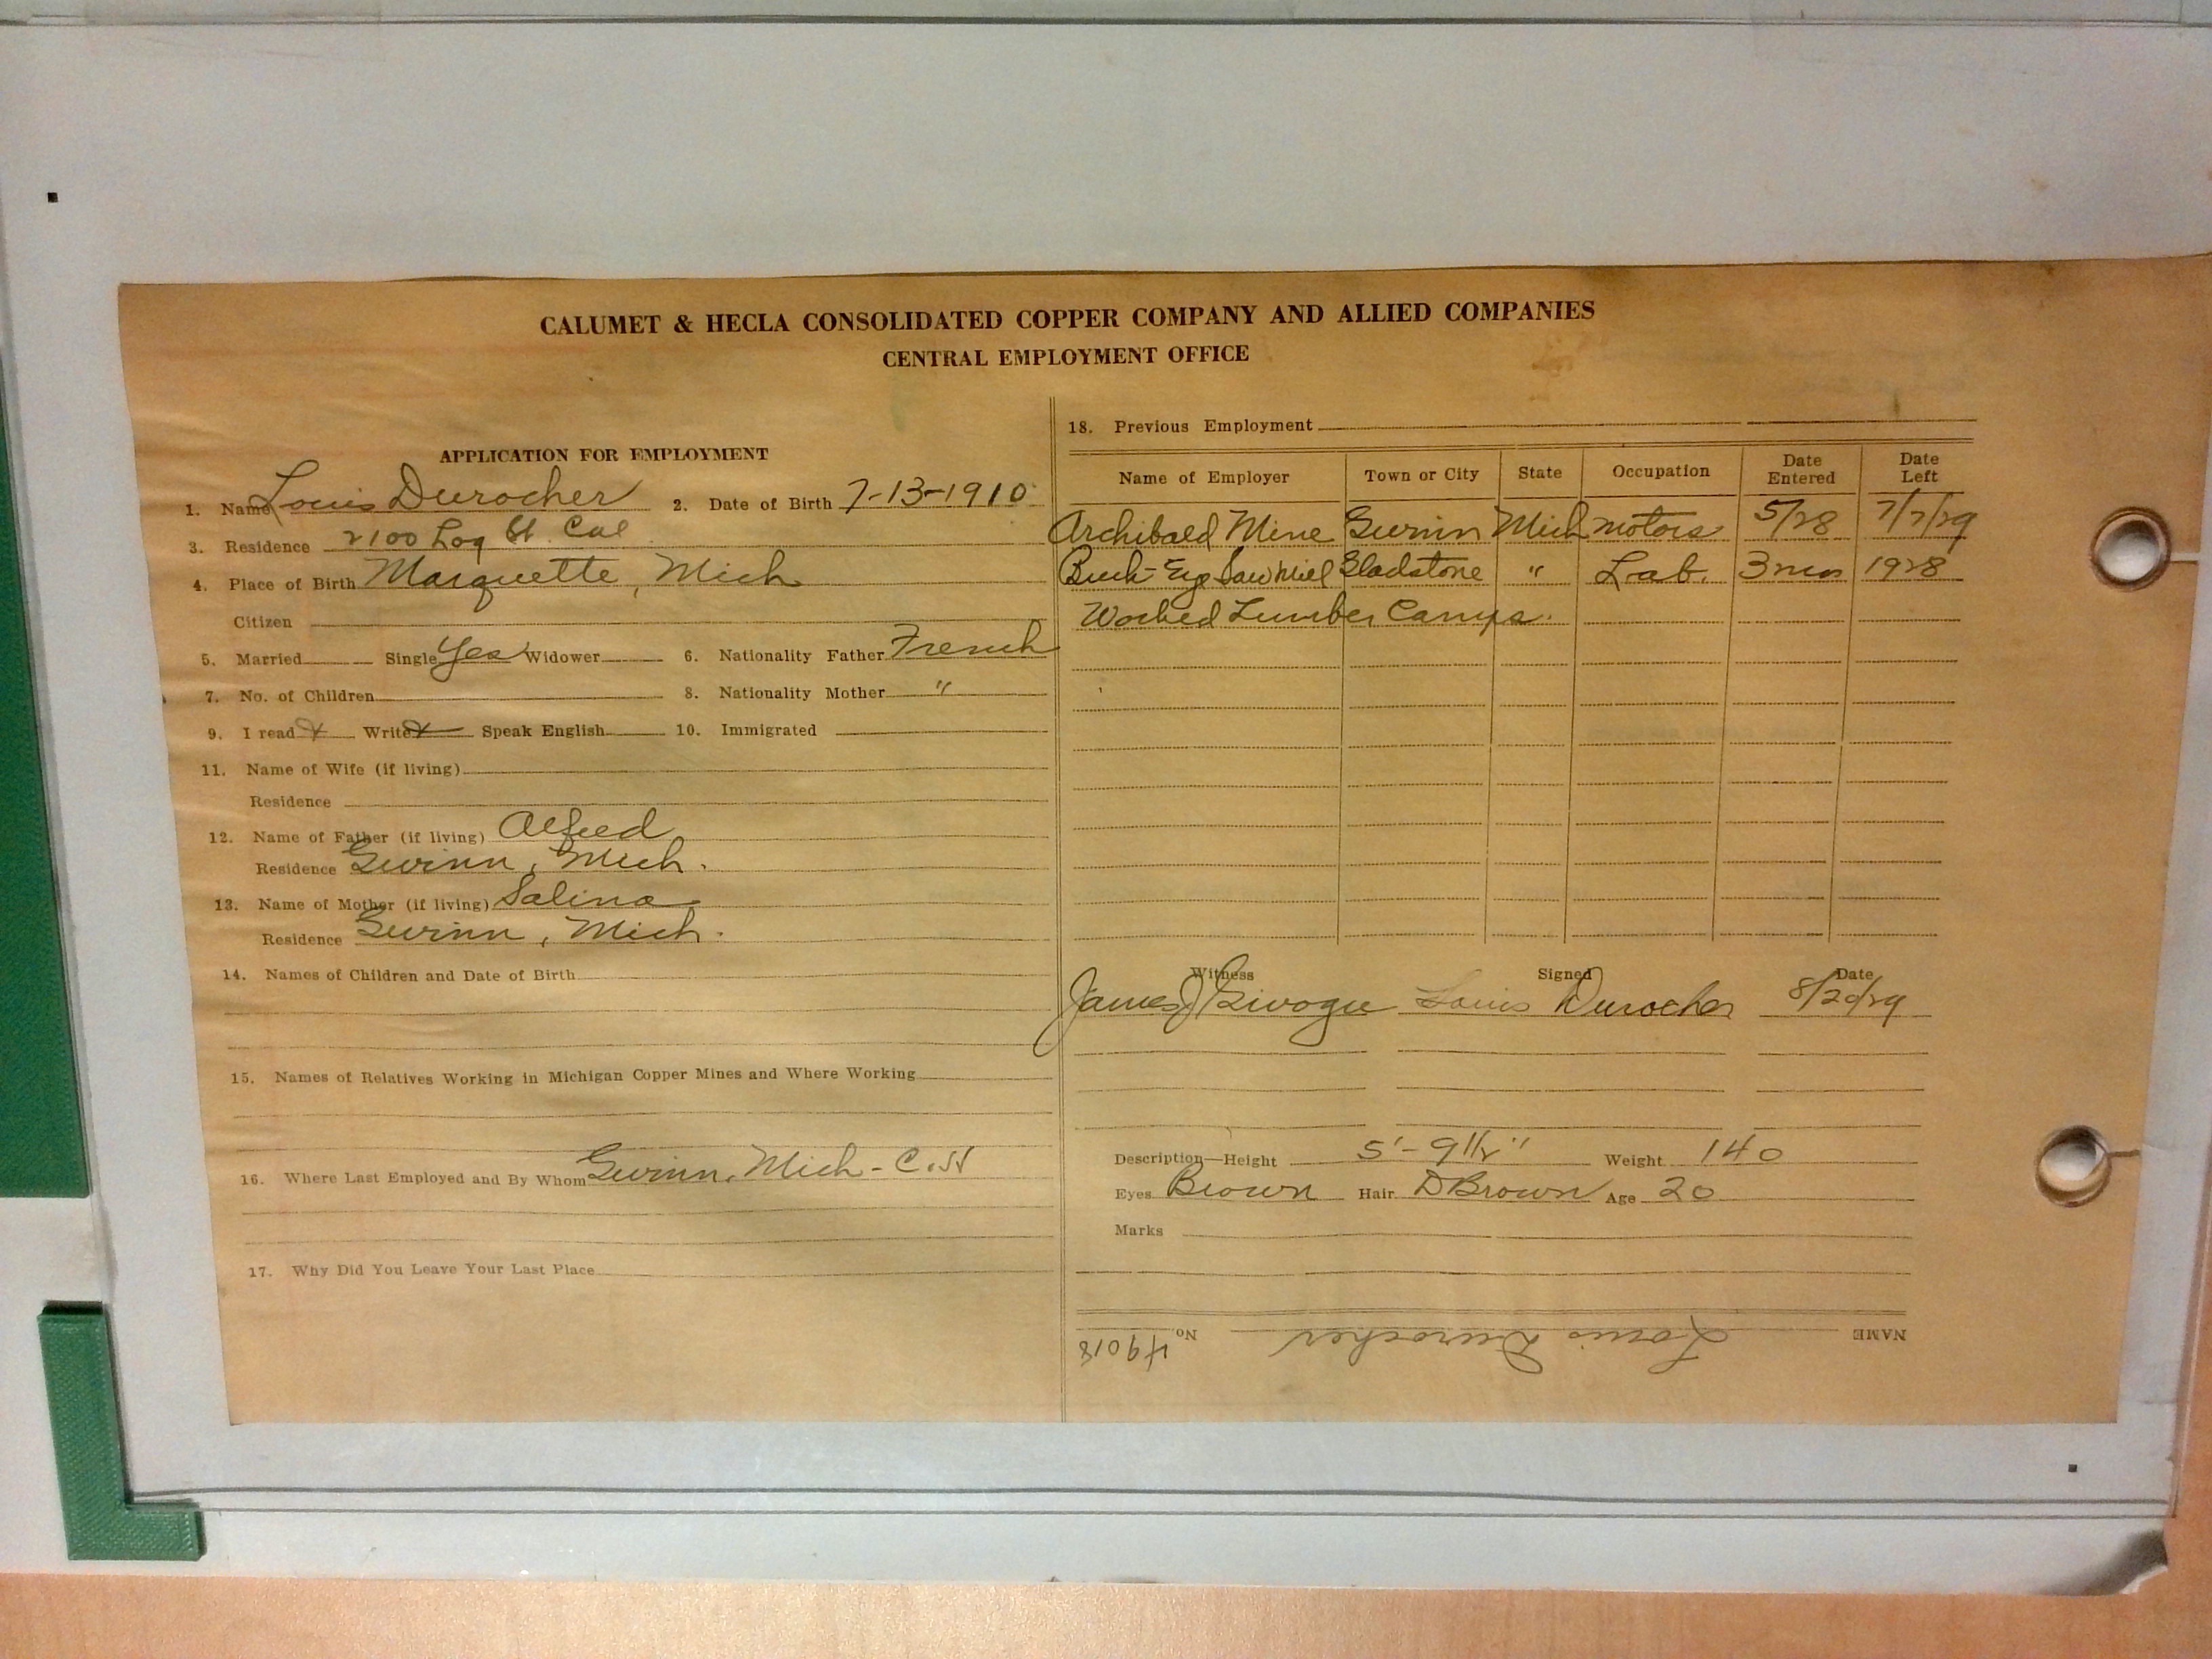 CALUMET & HECLA CONSOLIDATED COPPER COMPANY AND ALLIED COMPANIES
CENTRAL EMPLOYMENT OFFICE
APPLICATION FOR EMPLOYMENT
1. Name Louis Durocher 2. Date of Birth 7-13-1910
3. Residence 2100 Log St. Cal
4. Place of Birth Marquette, Mich
Citizen
5. Married Single Yes Widower 6. Nationality Father French
7. No. of Children 8. Nationality Mother "
9. I read X Write X Speak English 10. Immigrated
11. Name of Wife (if living)
Residence
12. Name of Father (if living) Alfred
Residence Gwinn, Mich.
13. Name of Mother (if living) Salina
Residence Gwinn, Mich.
14. Names of Children and Date of Birth
15. Names of Relatives Working in Michigan Copper Mines and Where Working
16. Where Last Employed and By Whom Gwinn, Mich -
17. Why Did You Leave Your Last Place
18. Previous Employment
Name of Employer Town or City State Occupation Date Entered Date Left
Archibald Mine Gwinn Mich motors 5/28 7/7/29
Buck-Eye Saw Mill Gladstone " Lab. 3 mos 1928
Worked Lumber Camps.
Witness Signed Date
James J Louis Durocher 8/20/29
Description—Height 5'-9 1/2" Weight 140
Eyes Brown Hair D Brown Age 20
Marks
NAME Louis Durocher No. 49018